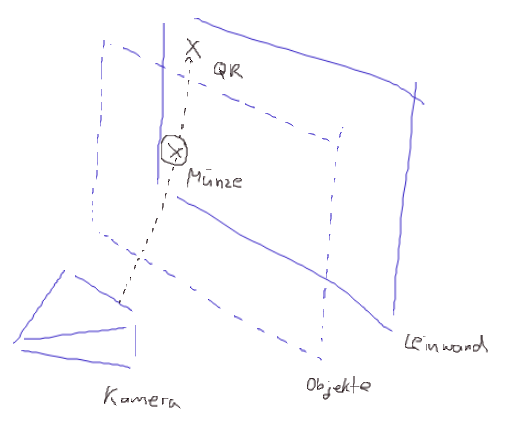 X
QR
X
Münze
Leinwand
Objekte
Kamera